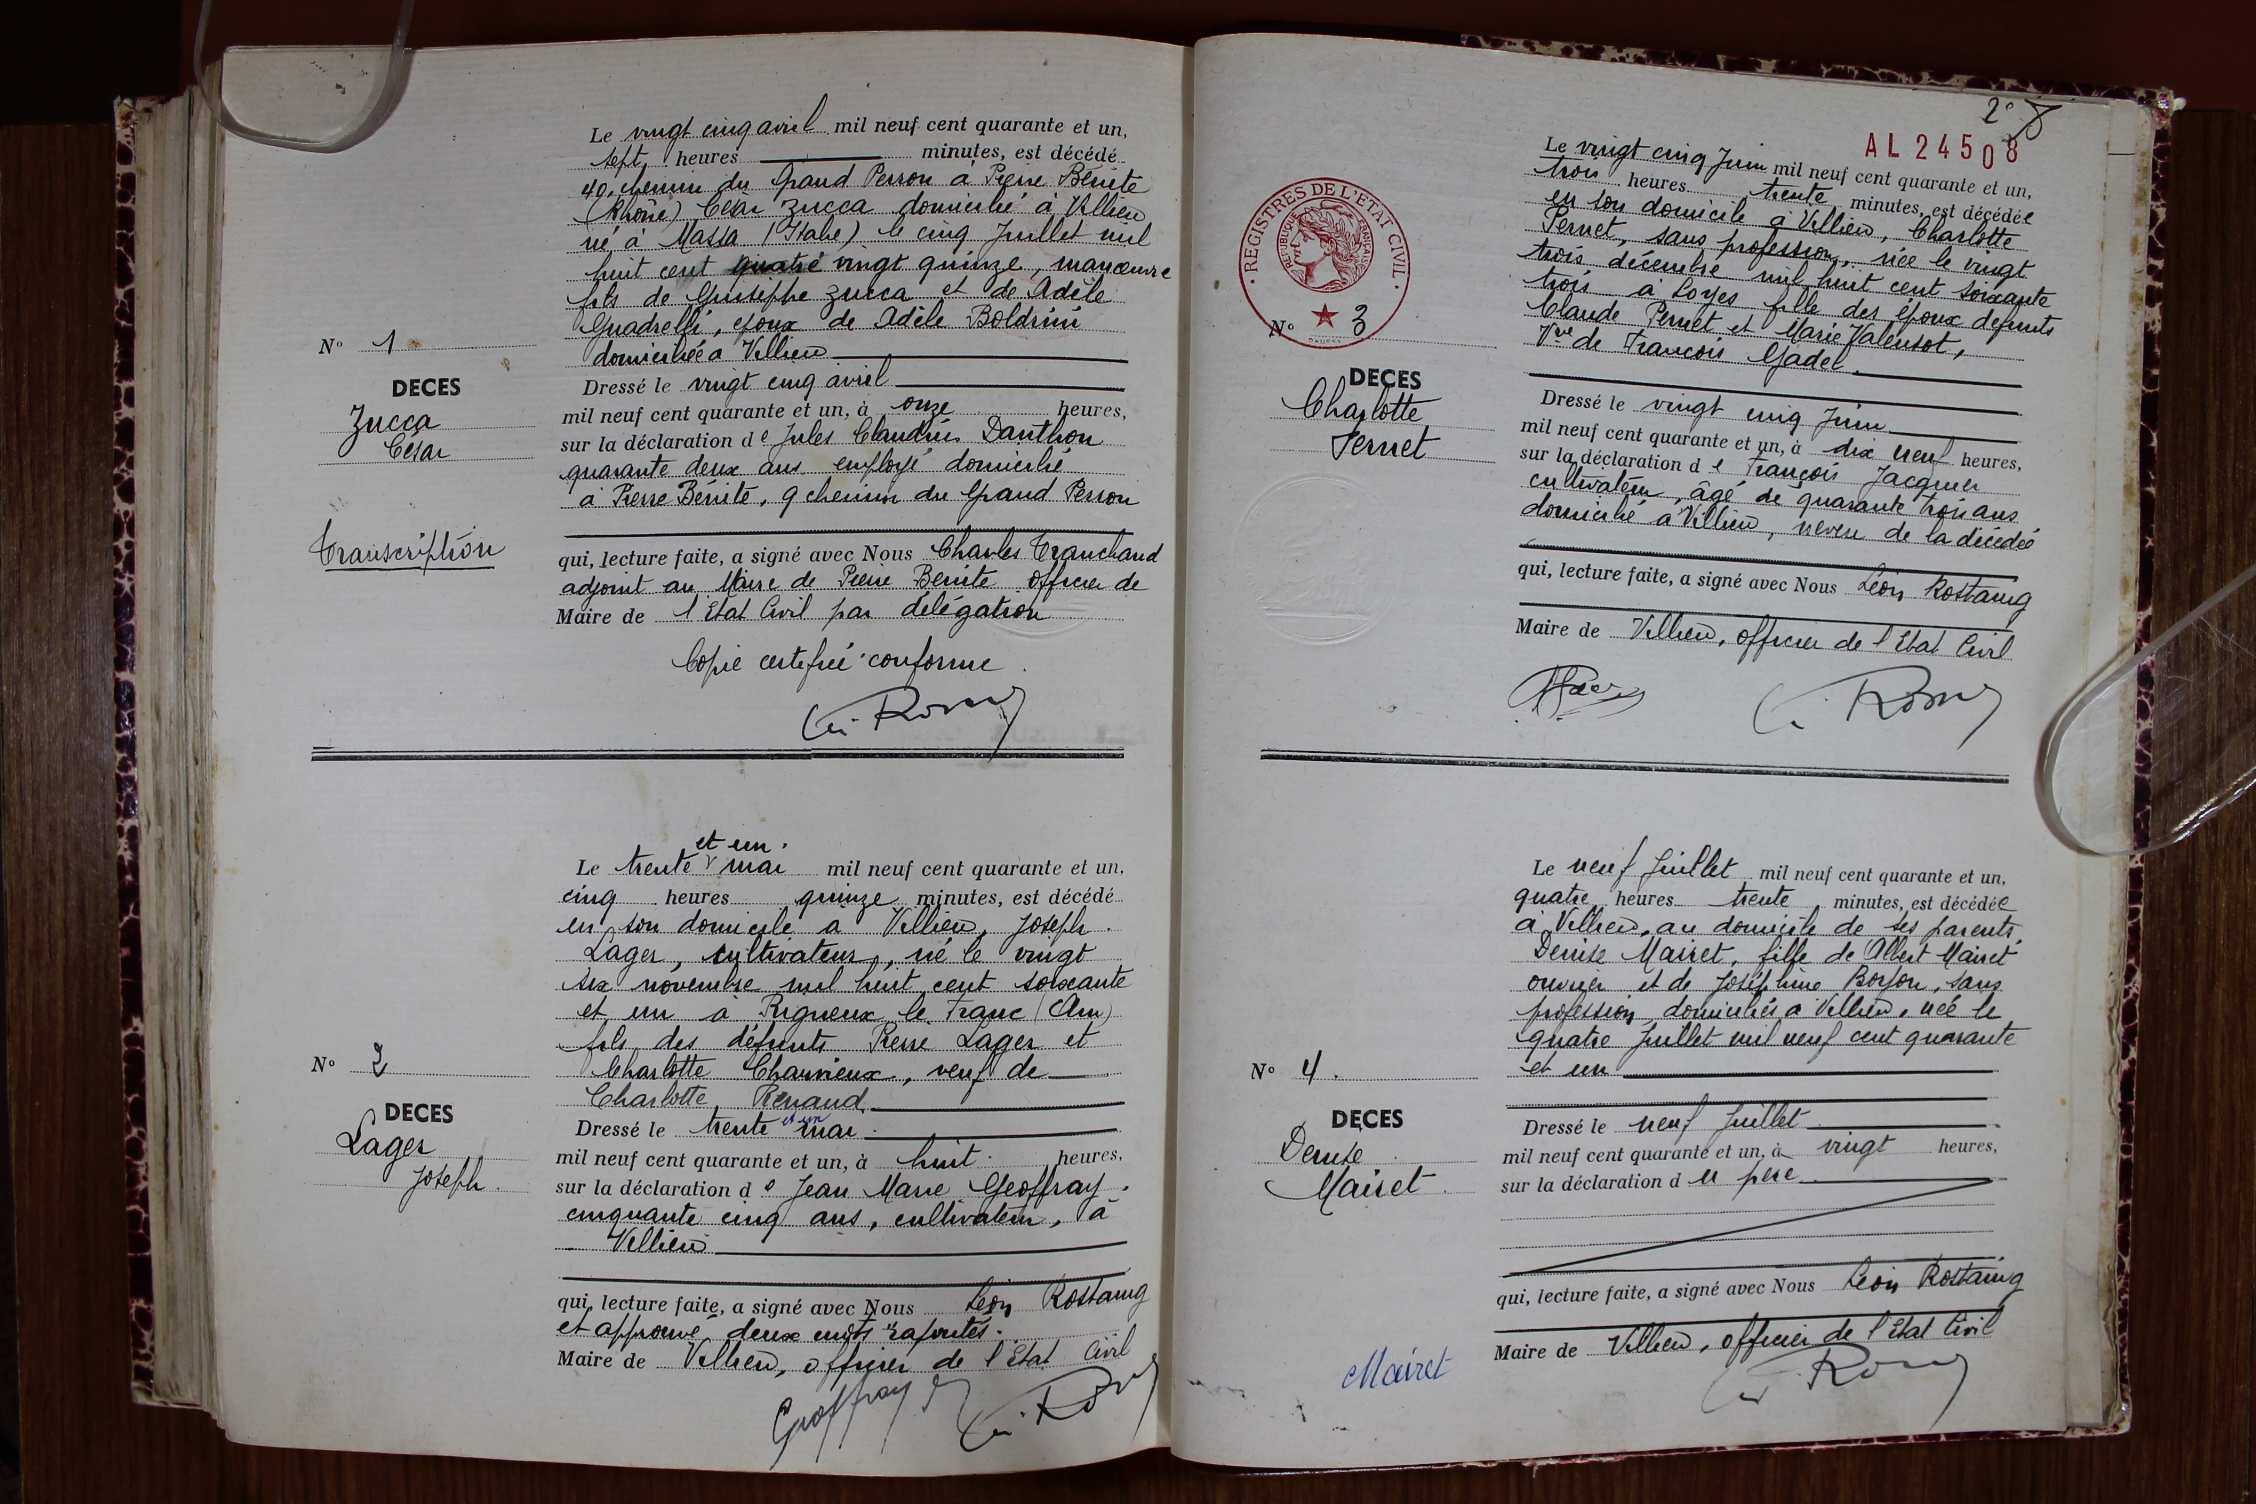 Le vingt cinq avril mil neuf cent quarante et un,
sept heures minutes, est décédé
40, chemin du Grand Perron à Pierre Bénite
(Rhône) César Zucca domicilié à Villieu
né à Massa (Italie) le cinq Juillet mil
huit cent quatre vingt quinze, manœuvre
fils de Giusephe Zucca et de Adèle
Guadrelli, époux de Adèle Boldrini
domiciliée à Villieu
N° 1
DECES
Zucca
César
Transcription
Dressé le vingt cinq avril
mil neuf cent quarante et un, à onze heures,
sur la déclaration de Jules Claudius Danthon
quarante deux ans employé domicilié
à Pierre Bénite, 9 chemin du Grand Perron
qui, lecture faite, a signé avec Nous Charles Tranchand
adjoint au Maire de Pierre Bénite officier de
Maire de l'Etat Civil par délégation
Copie certifiée conforme
Le trente et un mai mil neuf cent quarante et un,
cinq heures quinze minutes, est décédé
en son domicile à Villieu, Joseph
Lager, cultivateur, né le vingt
six novembre mil huit cent soixante
et un à Rigneux le Franc (Ain)
fils des défunts Pierre Lager et
Charlotte Charvieux, veuf de
Charlotte Renaud
N° 2
DECES
Lager
Joseph
Dressé le trente et un mai
mil neuf cent quarante et un, à huit heures,
sur la déclaration de Jean Marie Geoffray
cinquante cinq ans, cultivateur, à
Villieu
qui, lecture faite, a signé avec Nous Léon Rostaing
et approuvé deux mots rajoutés.
Maire de Villieu, officier de l'Etat Civil
Geoffray
2e
AL 24508
Le vingt cinq Juin mil neuf cent quarante et un,
trois heures trente minutes, est décédée
en son domicile à Villieu, Charlotte
Pernet, sans profession, née le vingt
trois décembre mil huit cent soixante
trois à Loyes fille des époux défunts
Claude Pernet et Marie Valensot,
Vve de François Gadel
REGISTRES DE L'ETAT CIVIL
REPUBLIQUE FRANÇAISE
N° 3
DECES
Charlotte
Pernet
Dressé le vingt cinq Juin
mil neuf cent quarante et un, à dix neuf heures,
sur la déclaration de François Jacquier
cultivateur, âgé de quarante trois ans
domicilié à Villieu, neveu de la décédée
qui, lecture faite, a signé avec Nous Léon Rostaing
Maire de Villieu, officier de l'Etat Civil
Le neuf Juillet mil neuf cent quarante et un,
quatre heures trente minutes, est décédée
à Villieu, au domicile de ses parents
Denise Mairet, fille de Albert Mairet
ouvrier et de Joséphine Borjon, sans
profession domiciliés à Villieu, née le
quatre Juillet mil neuf cent quarante
et un
N° 4.
DECES
Denise
Mairet
Dressé le neuf Juillet
mil neuf cent quarante et un, à vingt heures,
sur la déclaration du père
qui, lecture faite, a signé avec Nous Léon Rostaing
Maire de Villieu, officier de l'Etat Civil
Mairet